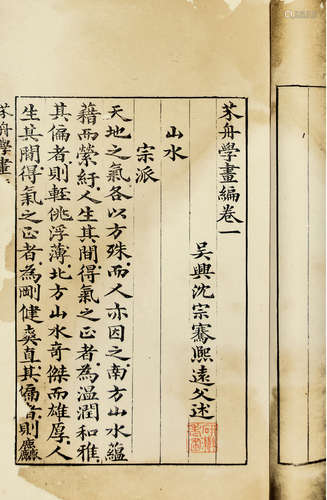 芥舟學畫編卷一
吳興沈宗騫熙遠父述
山水
宗派
天地之氣各以方殊而人亦因之南方山水蘊
藉而縈紆人生其間得氣之正者為溫潤和雅
其偏者則輕佻浮薄北方山水奇傑而雄厚人
生其間得氣之正者為剛健爽直其偏者則麤
芥舟學畫